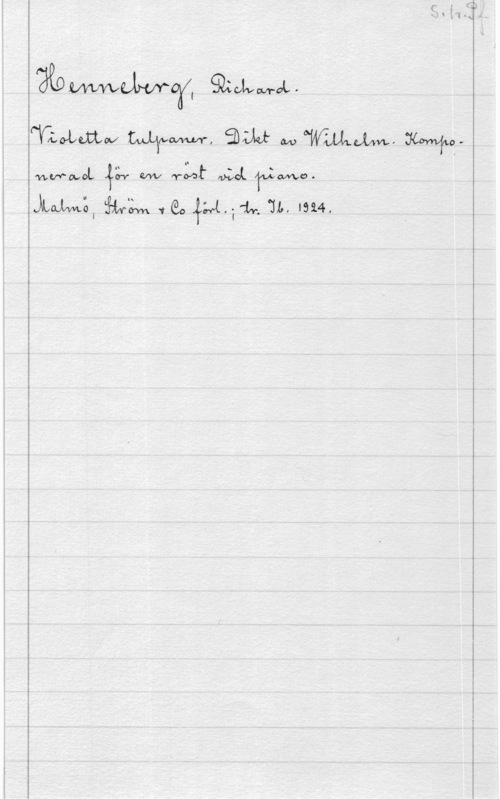 S. tr. Pf
Henneberg, Richard.
Violetta tulpaner. Dikt av Wilhelm. Kompo-
nerad för en röst vid piano.
Malmö, Ström & Co förl.; tr. Ib. 1924.